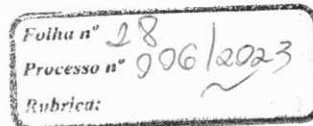 Folha nº 18
Processo nº 006/2023
Rubrica: